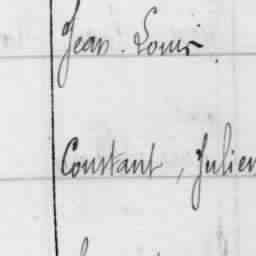 Jean. Louis.
Constant, Julien